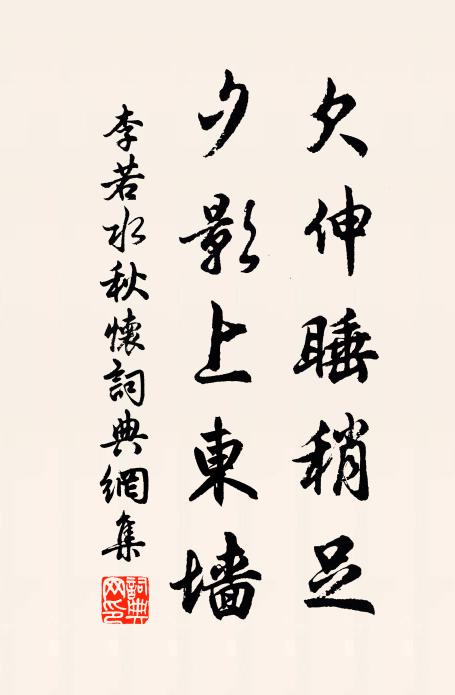 欠伸睡稍足
夕影上東墻
李若水秋懷詞典網集
詞典网印